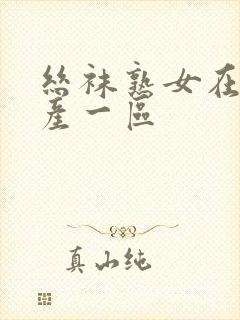 絲袜熟女在
產一區
真山纯